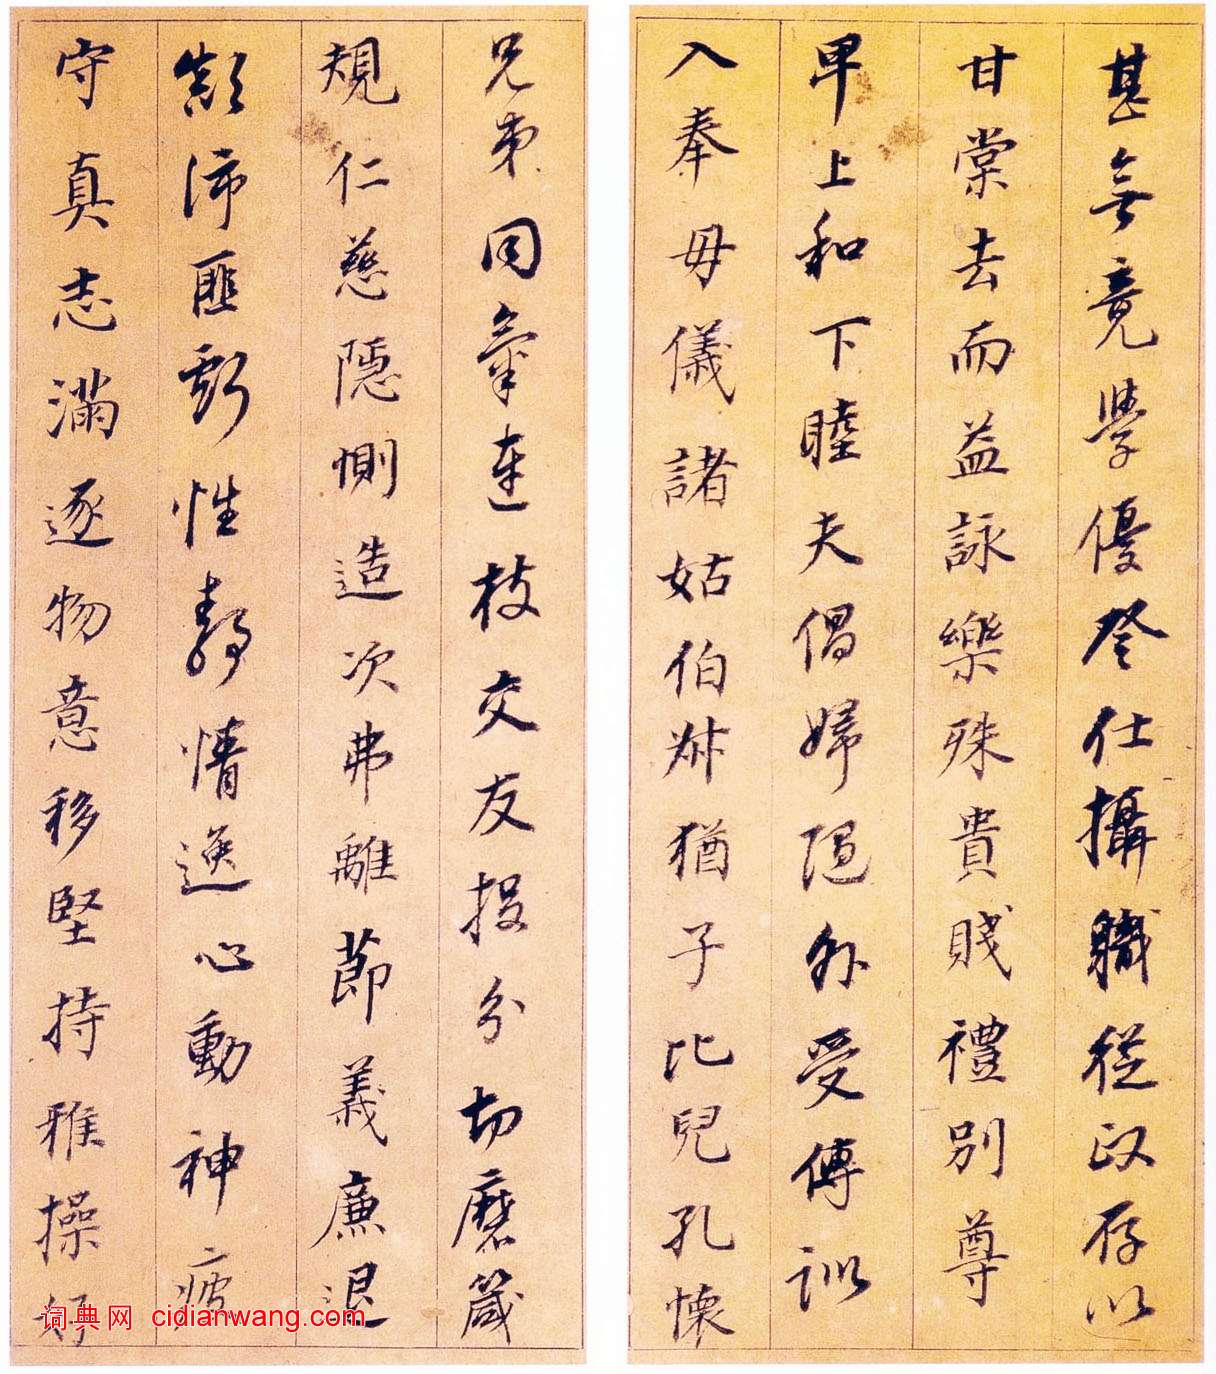 甚無竟學優登仕攝職從政存以
甘棠去而益詠樂殊貴賤禮別尊
卑上和下睦夫倡婦隨外受傅訓
入奉母儀諸姑伯叔猶子比兒孔懷
兄弟同氣連枝交友投分切磨箴
規仁慈隱惻造次弗離節義廉退
顛沛匪虧性靜情逸心動神疲
守真志滿逐物意移堅持雅操好
词典网 cidianwang.com